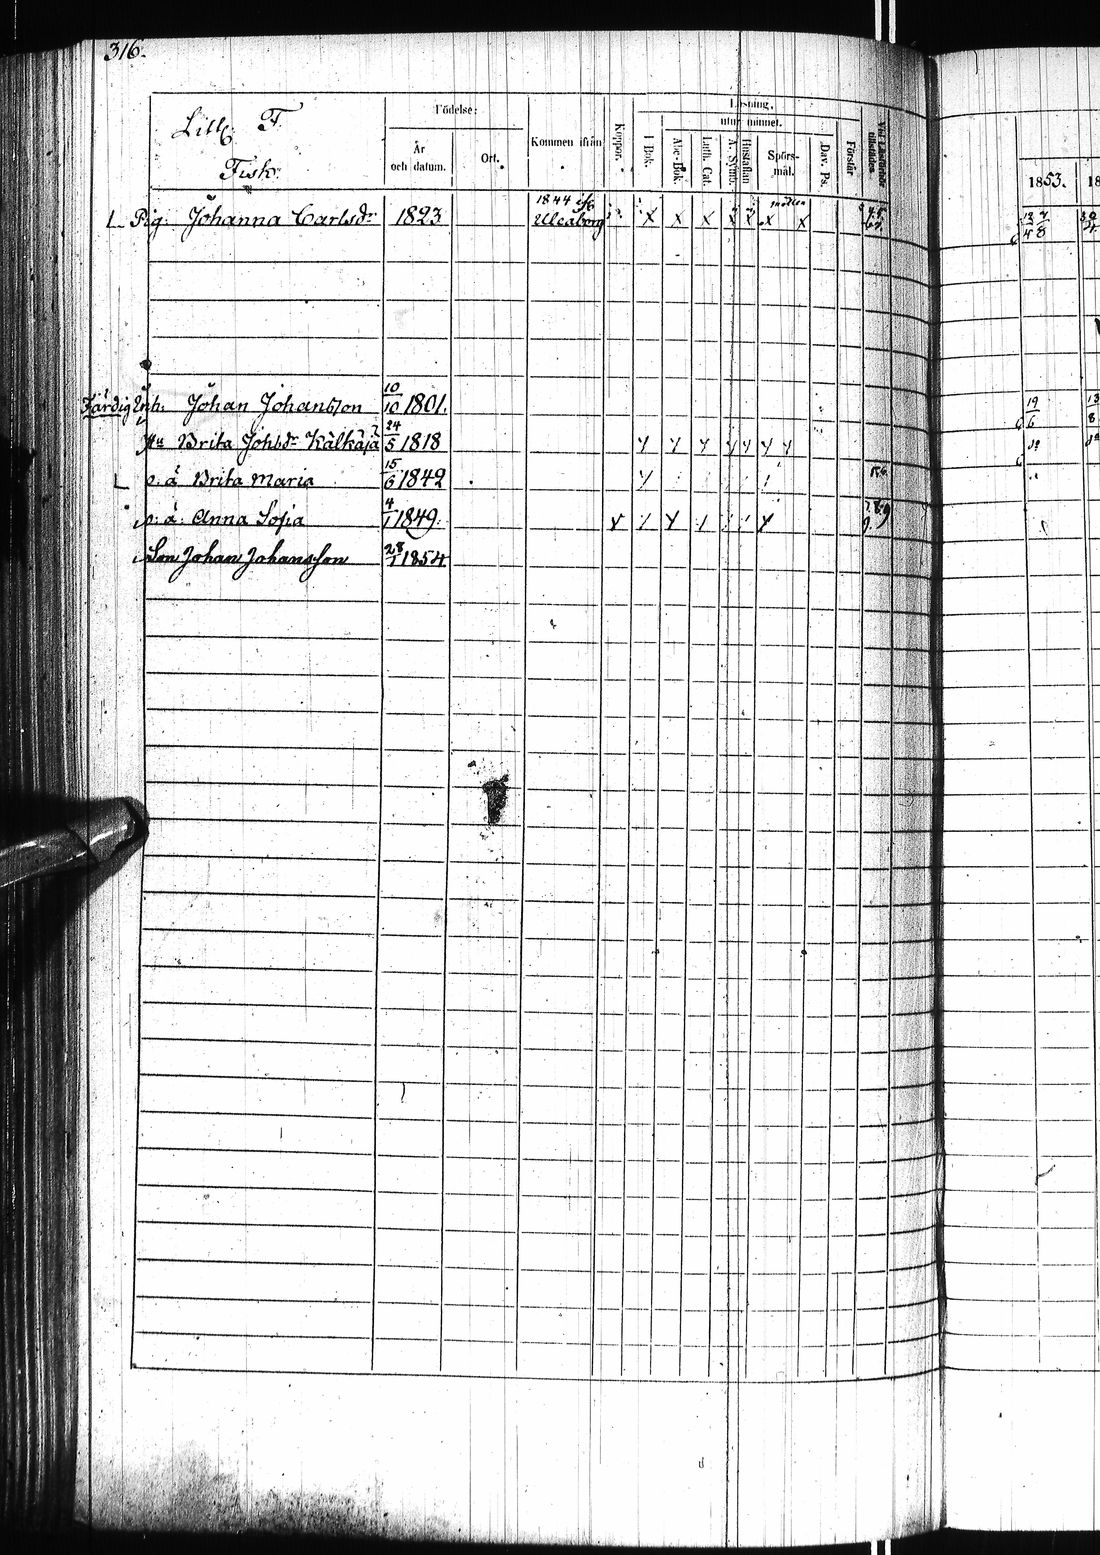 316.
Litt. F.
Fisk.
Födelse:
År och datum.
Ort.
Kommen ifrån
Koppor.
Läsning,
utur minnet.
I Bok.
Abc-Bok.
Luth. Cat.
A. Symb.
Hustaflan
Spörs-mål.
Dav. Ps.
Förstår
Vid Läsförhör tillstädes.
1853.
L Pig. Johanna Carlsdr 1823 1844 Uleåborg x x x x x x x
Färdig Inh. Johan Johansson 10/10 1801. 19/6
Hu Brita Johsdr Kälkäjä 24/5 1818
L d. ä Brita Maria 15/6 1842
d. ä. Anna Sofia 4/1 1849.
Son Johan Johansson 28/1 1854